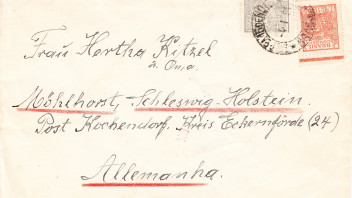 Frau Hertha Kitzel
u. Oma
Möhlhorst, Schleswig-Holstein.
Post Kochendorf, Kreis Eckernförde (24)
Allemanha.